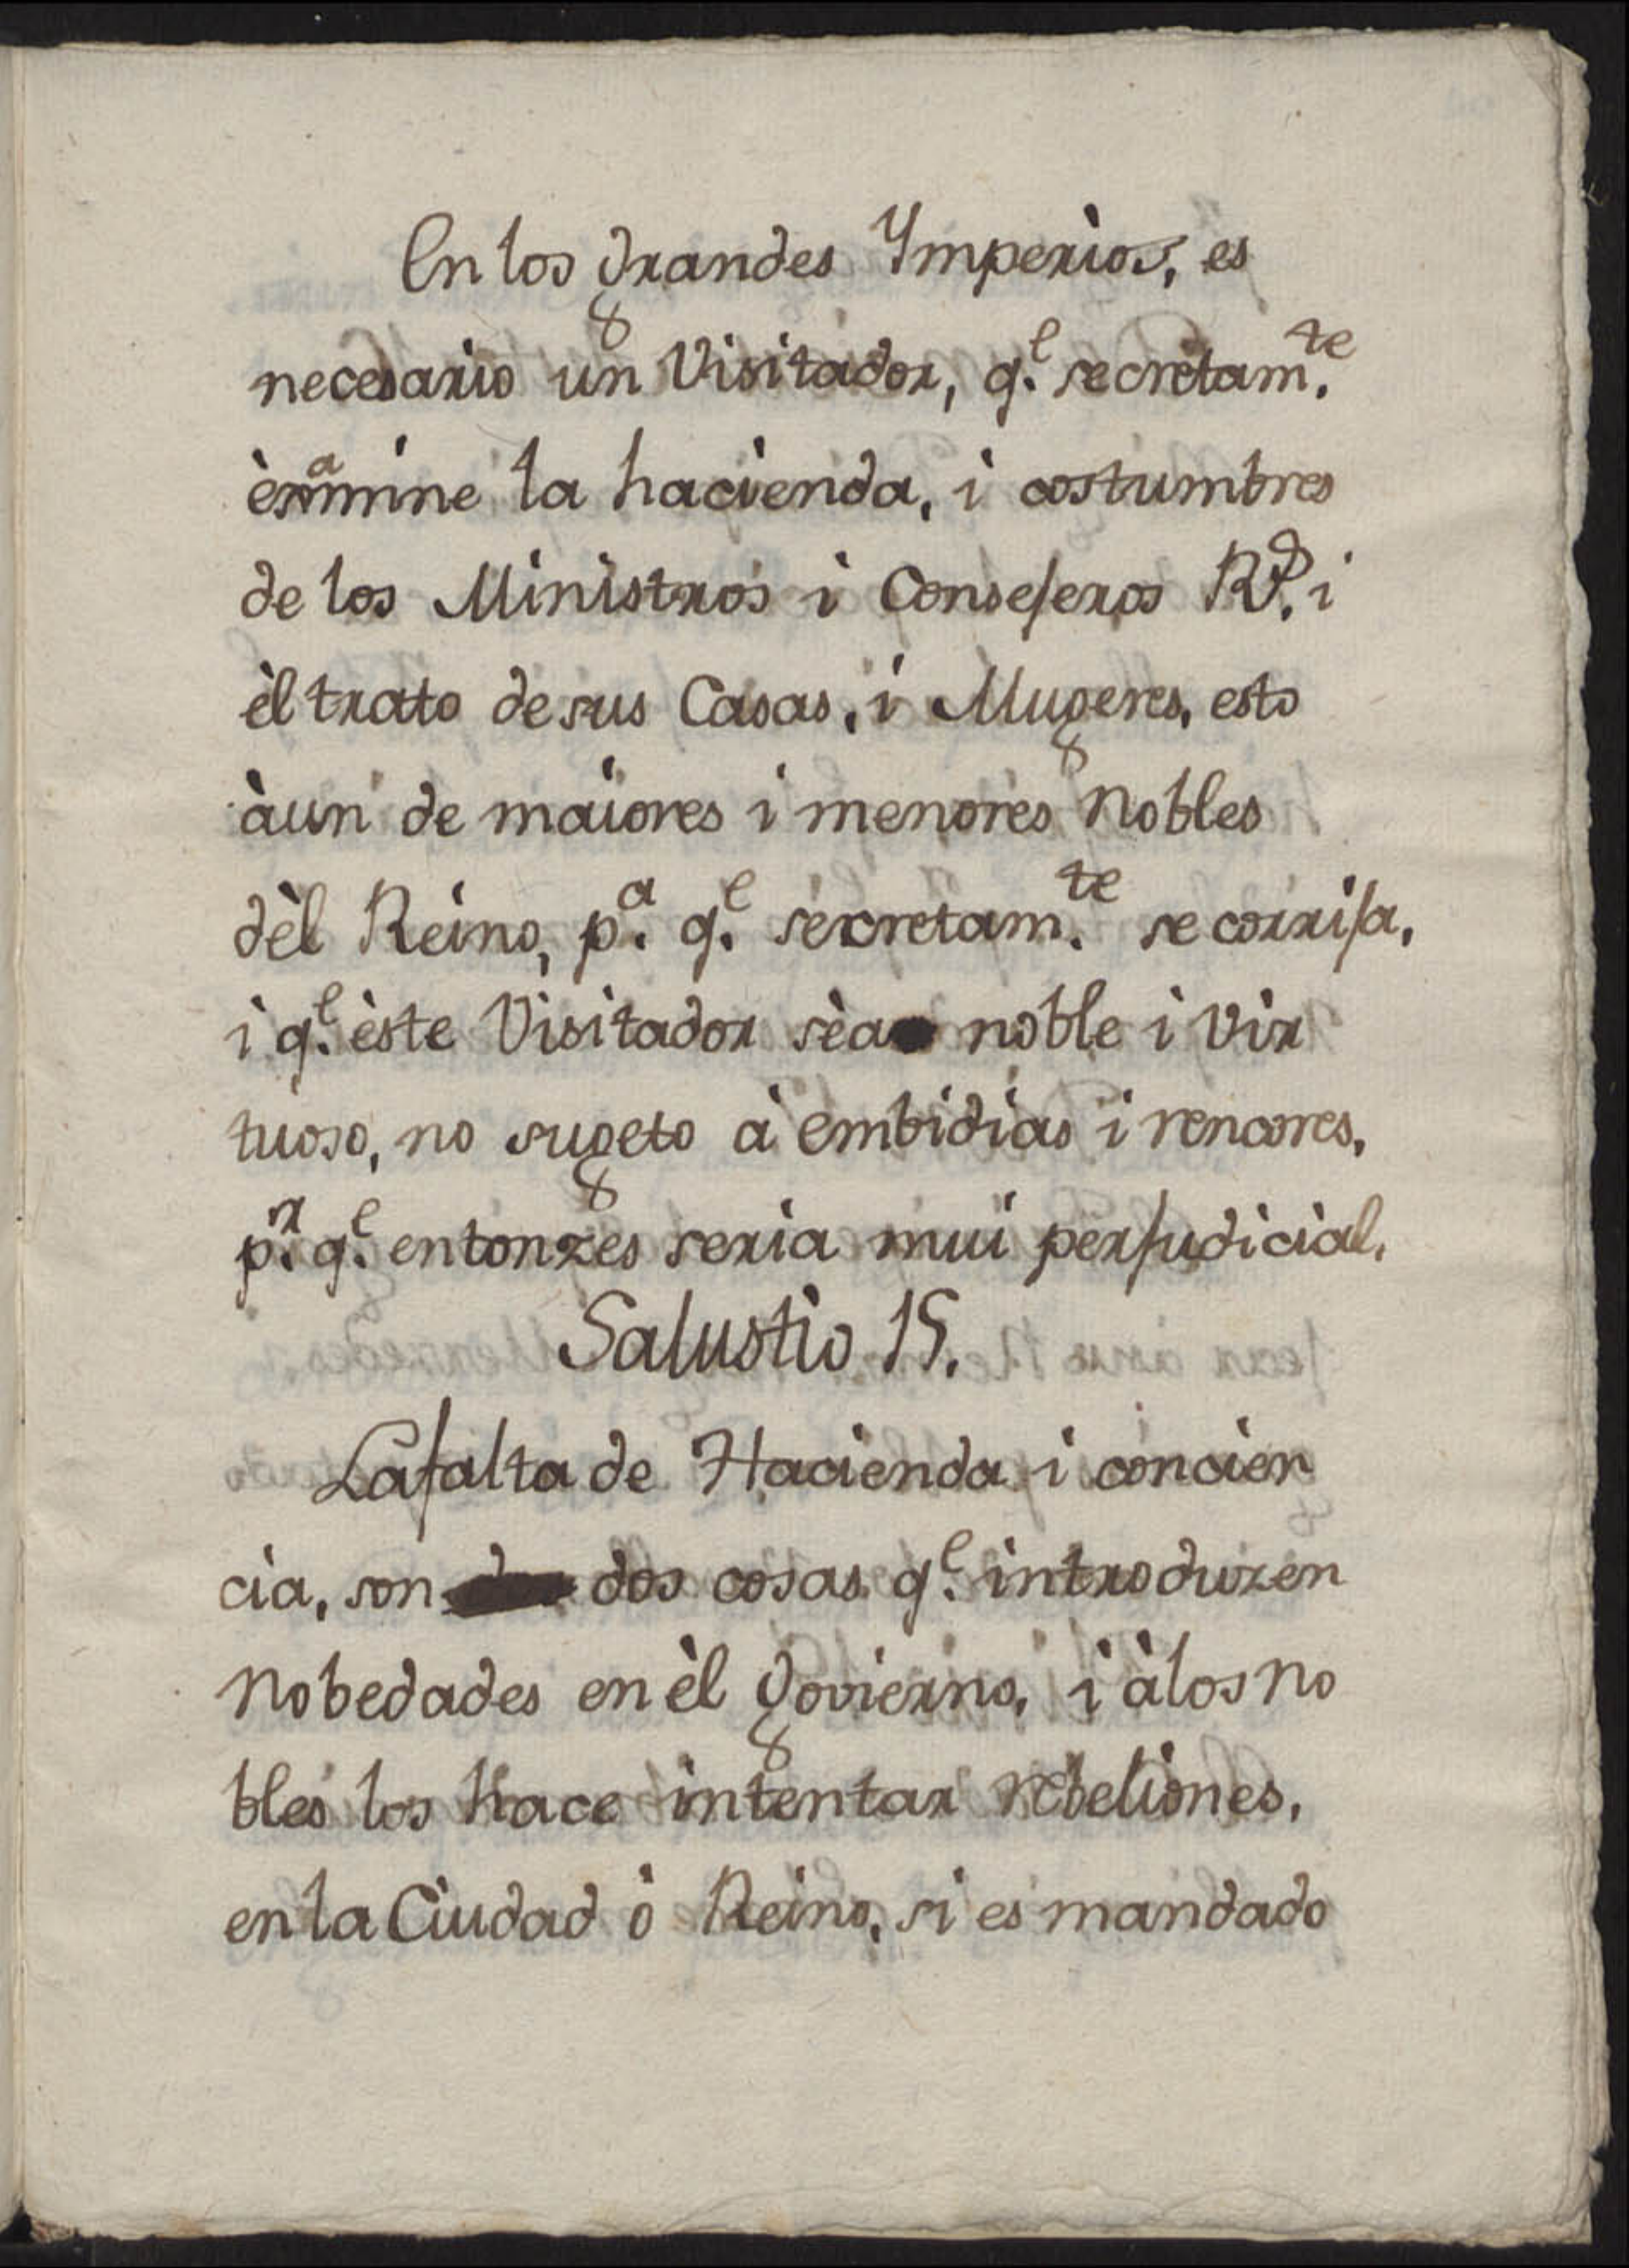 En los grandes Ymperios, es
necesario un Visitador, q.e secretam.te
èxamine la hacienda, i costumbres
de los Ministros i Consejeros R.s i
èl trato de sus Casas, i Mugeres, esto
àun de maiores i menores Nobles
dèl Reino, p.a q.e secretam.te se corrija,
i q.e èste Visitador sèa noble i vir
tuoso, no sugeto à embidias i rencores,
p.r q.e entonzes seria mui perjudicial.
Salustio 15.
La falta de Hacienda i concien
cia, son dos cosas q.e introduzen
Nobedades en èl Govierno, i à los no
bles los hace intentar rebeliones,
en la Ciudad ò Reino, si es mandado